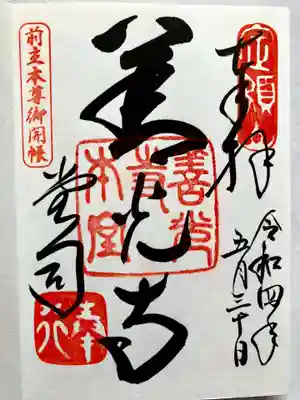 定額
奉拝
令和四年
五月三十日
善光寺
善光寺本堂
堂司
前立本尊御開帳